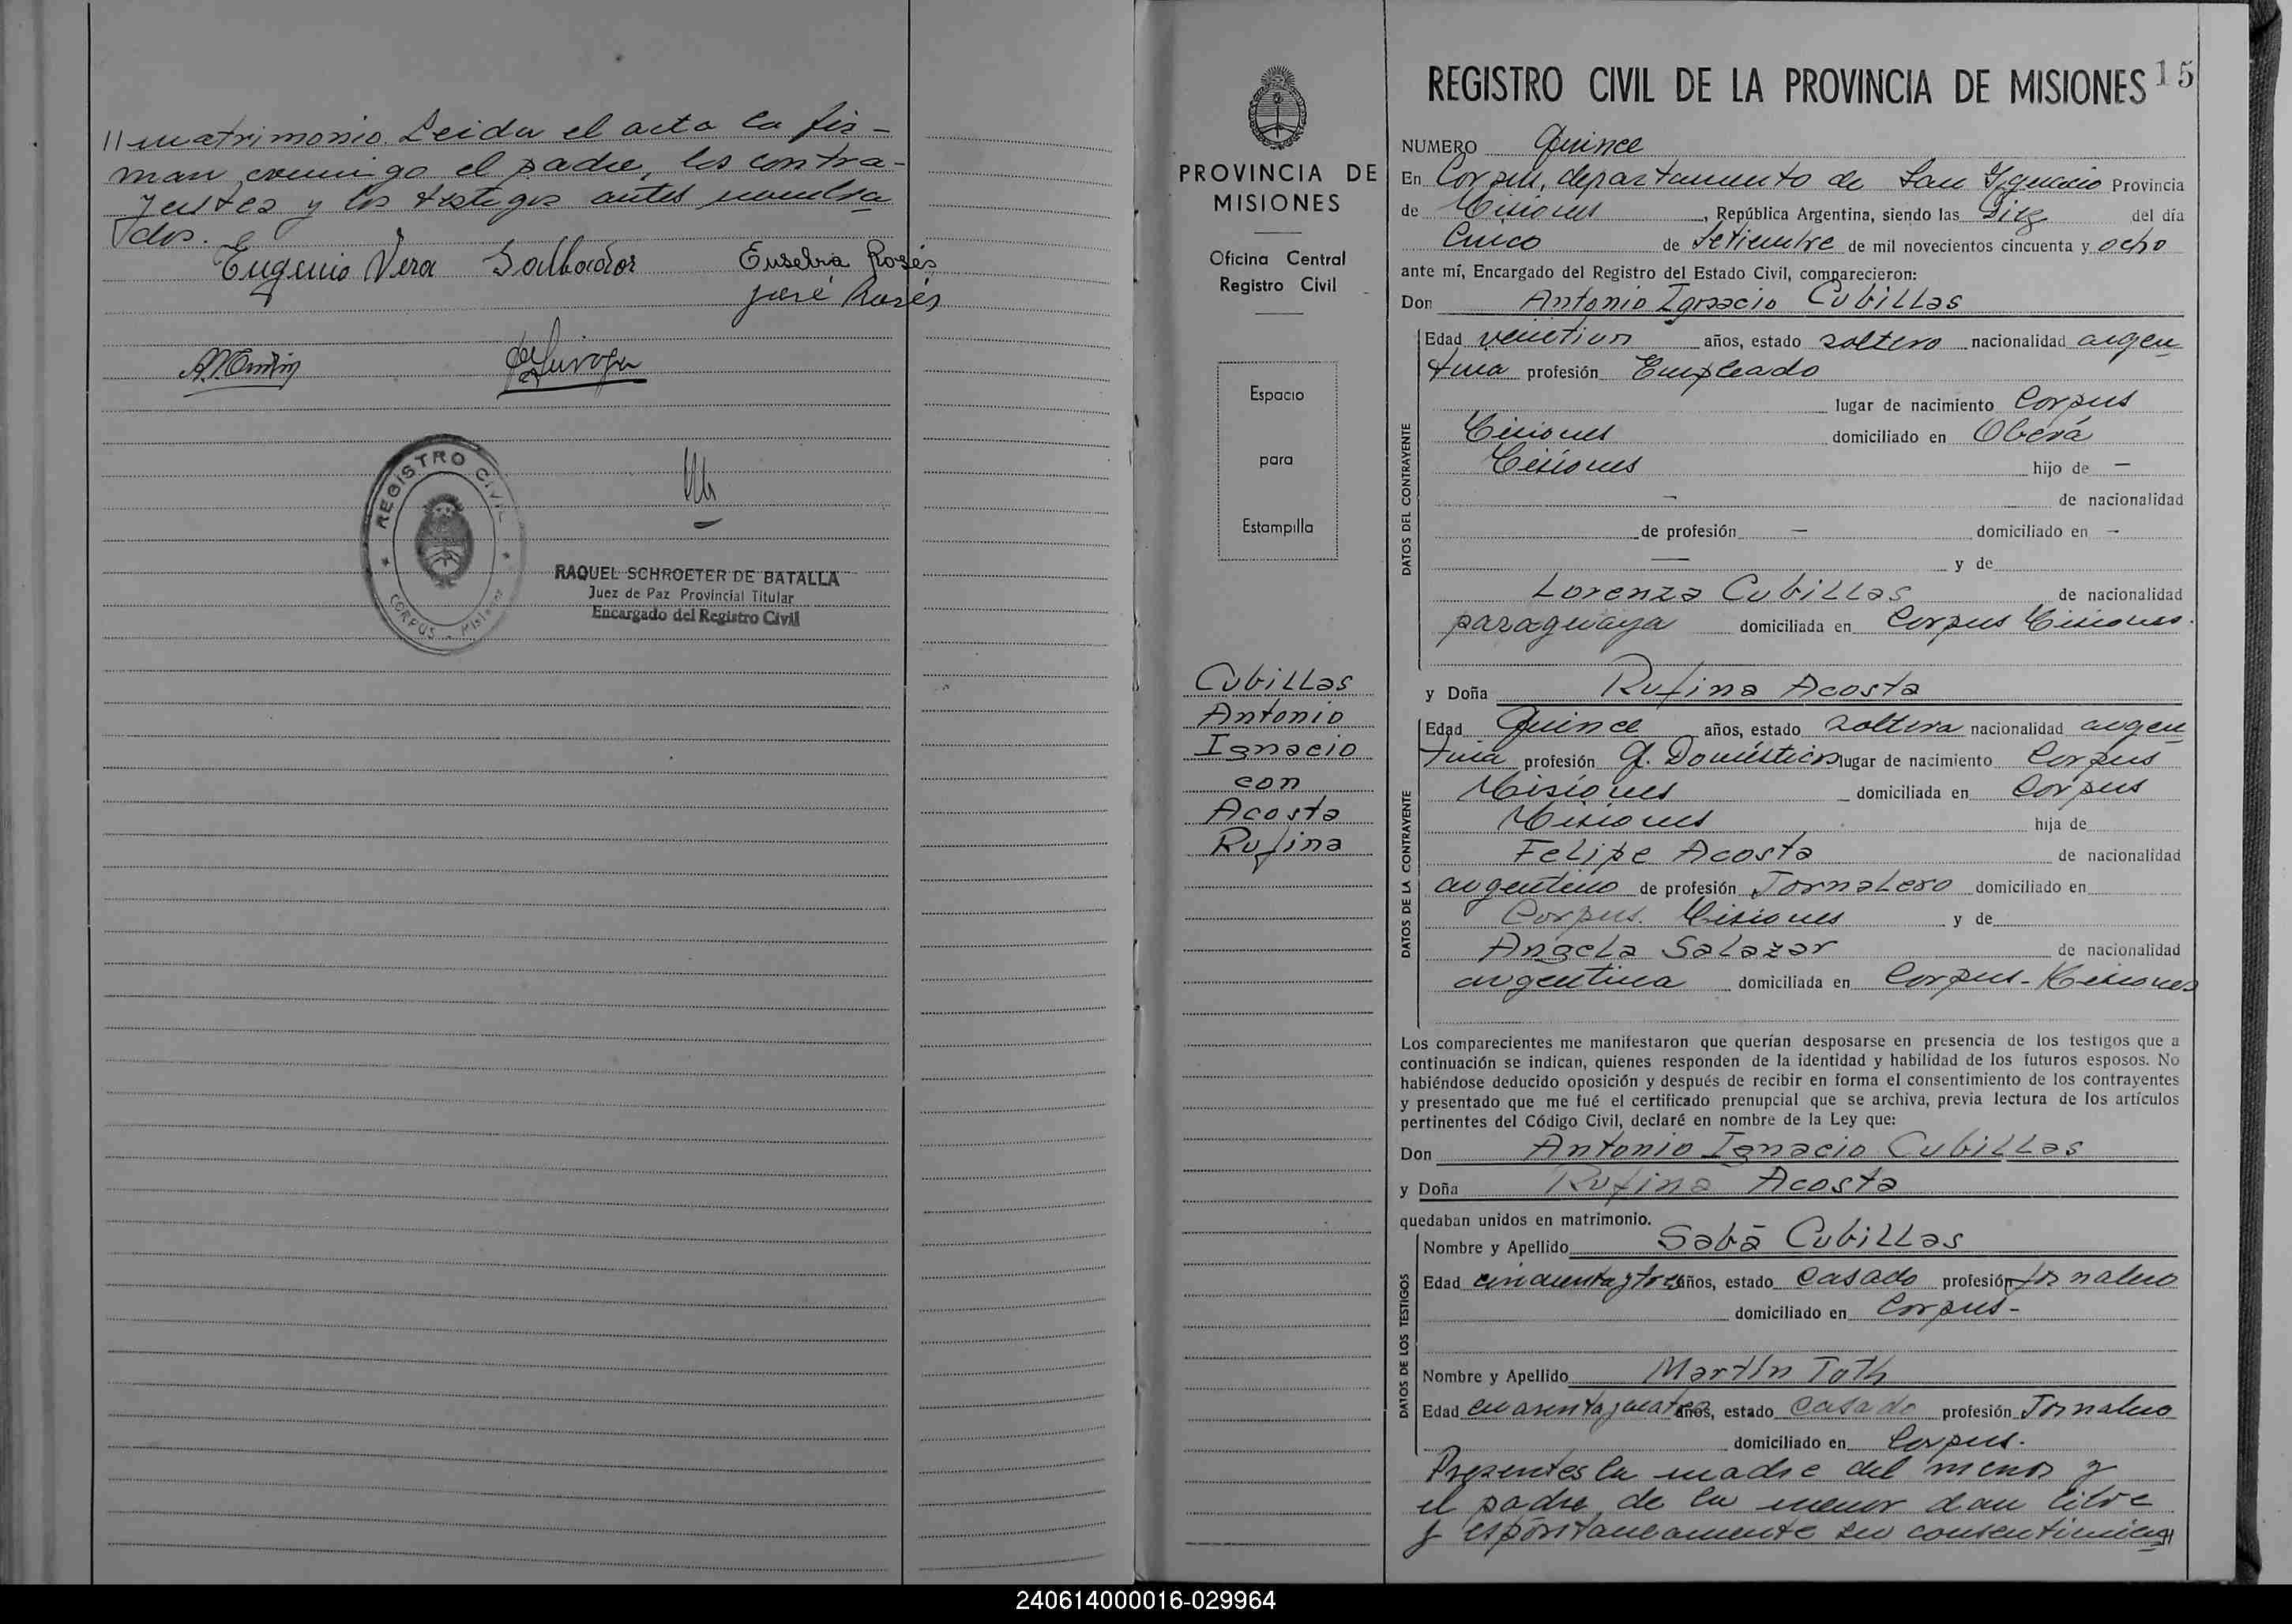 matrimonio. Leida el acta la fir-
man conmigo el padre, los contra-
yentes y los testigos antes nombra
dos.
Eugenio Vera Salbador Eusebia Rosés
José Rosés
REGISTRO CIVIL
CORPUS - Misiones
RAQUEL SCHROETER DE BATALLA
Juez de Paz Provincial Titular
Encargado del Registro Civil
PROVINCIA DE
MISIONES
Oficina Central
Registro Civil
Espacio
para
Estampilla
Cubillas
Antonio
Ignacio
con
Acosta
Rufina
REGISTRO CIVIL DE LA PROVINCIA DE MISIONES 15
NUMERO Quince
En Corpus, departamento de San Ignacio Provincia
de Misiones, República Argentina, siendo las Diez del día
Cinco de Setiembre de mil novecientos cincuenta y ocho
ante mí, Encargado del Registro del Estado Civil, comparecieron:
Don Antonio Ignacio Cubillas
DATOS DEL CONTRAYENTE
Edad veintiun años, estado soltero nacionalidad argen
tina profesión Empleado
lugar de nacimiento Corpus
Misiones domiciliado en Oberá
Misiones hijo de —
— de nacionalidad
de profesión — domiciliado en —
— y de
Lorenza Cubillas de nacionalidad
paraguaya domiciliada en Corpus Misiones.
y Doña Rufina Acosta
DATOS DE LA CONTRAYENTE
Edad Quince años, estado soltera nacionalidad argen
tina profesión Q. Domésticos lugar de nacimiento Corpus
Misiones domiciliada en Corpus
Misiones hija de
Felipe Acosta de nacionalidad
argentino de profesión Jornalero domiciliado en
Corpus. Misiones y de
Angela Salazar de nacionalidad
argentina domiciliada en Corpus - Misiones
Los comparecientes me manifestaron que querían desposarse en presencia de los testigos que a
continuación se indican, quienes responden de la identidad y habilidad de los futuros esposos. No
habiéndose deducido oposición y después de recibir en forma el consentimiento de los contrayentes
y presentado que me fué el certificado prenupcial que se archiva, previa lectura de los artículos
pertinentes del Código Civil, declaré en nombre de la Ley que:
Don Antonio Ignacio Cubillas
y Doña Rufina Acosta
quedaban unidos en matrimonio.
DATOS DE LOS TESTIGOS
Nombre y Apellido Sabá Cubillas
Edad cincuenta y tres años, estado casado profesión Jornalero
domiciliado en Corpus-
Nombre y Apellido Martín Toth
Edad cuarenta y cuatro años, estado casado profesión Jornalero
domiciliado en Corpus.
Presentes la madre del menor y
el padre de la menor dan libre
y espontaneamente su consentimien
240614000016-029964